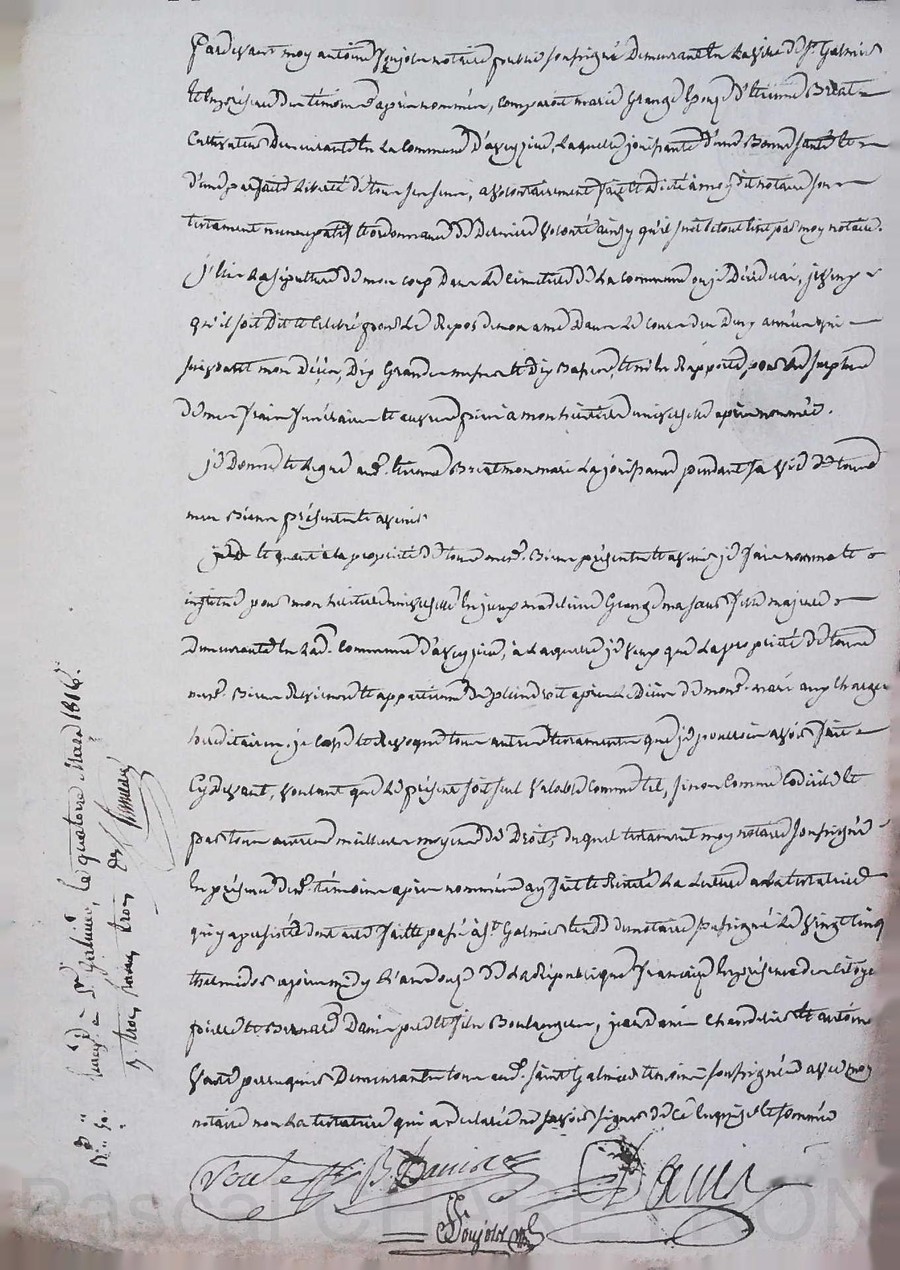 Pardevant moy antoine Poujolx notaire public soussigné demeurant en la ville de St Galmier
et en présence des temoins cy après nommés, comparoit marie Grange épouse d'étienne Breat
Cultivateur demeurante en la commune d'aveyzieu, laquelle jouissante d'une bonne santé et
d'une parfaite liberté de tous ses sens, a volontairement fait et dicté à moy dit notaire son
testament nuncupatif et ordonnance de derniere volonté ainsy qu'il suit le tout écrit par moy notaire.
j'élis la sépulture de mon corps dans le cimetiere de la commune ou je décéderai, je veux
qu'il soit dit et célébré pour le repos de mon ame dans le cours des deux années qui
suivront mon décès, dix grandes messes et dix basses, et m'en rapporte pour le surplus
de mes frais funéraires et œuvres pies à mon héritiere universelle après nommée.
je donne et legue aud. étienne Breat mon mari la jouissance pendant sa vie de tous
mes biens présents et avenir
et quant à la propriété de tous mesd. biens présents et avenir je fais nomme et
institue pour mon héritiere universelle magdeleine Grange ma sœur fille majeure
demeurante en lad. commune d'aveyzieu, à laquelle je veux que la propriété de tous
mesd. biens revienne et appartienne de plein droit après le décès de mond. mari aux charges
héréditaires, je casse et revoque tous autres testaments que je pourrois avoir fait
Cydevant, voulant que le présent soit seul valable comme tel, sinon comme codicile et
par tous autres meilleurs moyens de droit, duquel testament moy notaire soussigné
en présence desd. témoins après nommés ay fait et réitéré la lecture à la testatrice
qui y a persisté dont acte fait et passé à St Galmier étude du notaire soussigné le vingt cinq
thermidor après midy l'an douze de la République française en présence des citoyens
pierre et Bernard Danis pere et fils Boulangers, jean Danis Chandelier et antoine
perruquier demeurants tous aud. saint Galmier temoins soussignés avec moy
notaire non la testatrice qui a déclaré ne savoir signer de ce enquise et sommée
B. Danis
Danis
Poujolx
à St Galmier, le quatorze Mars 1816.